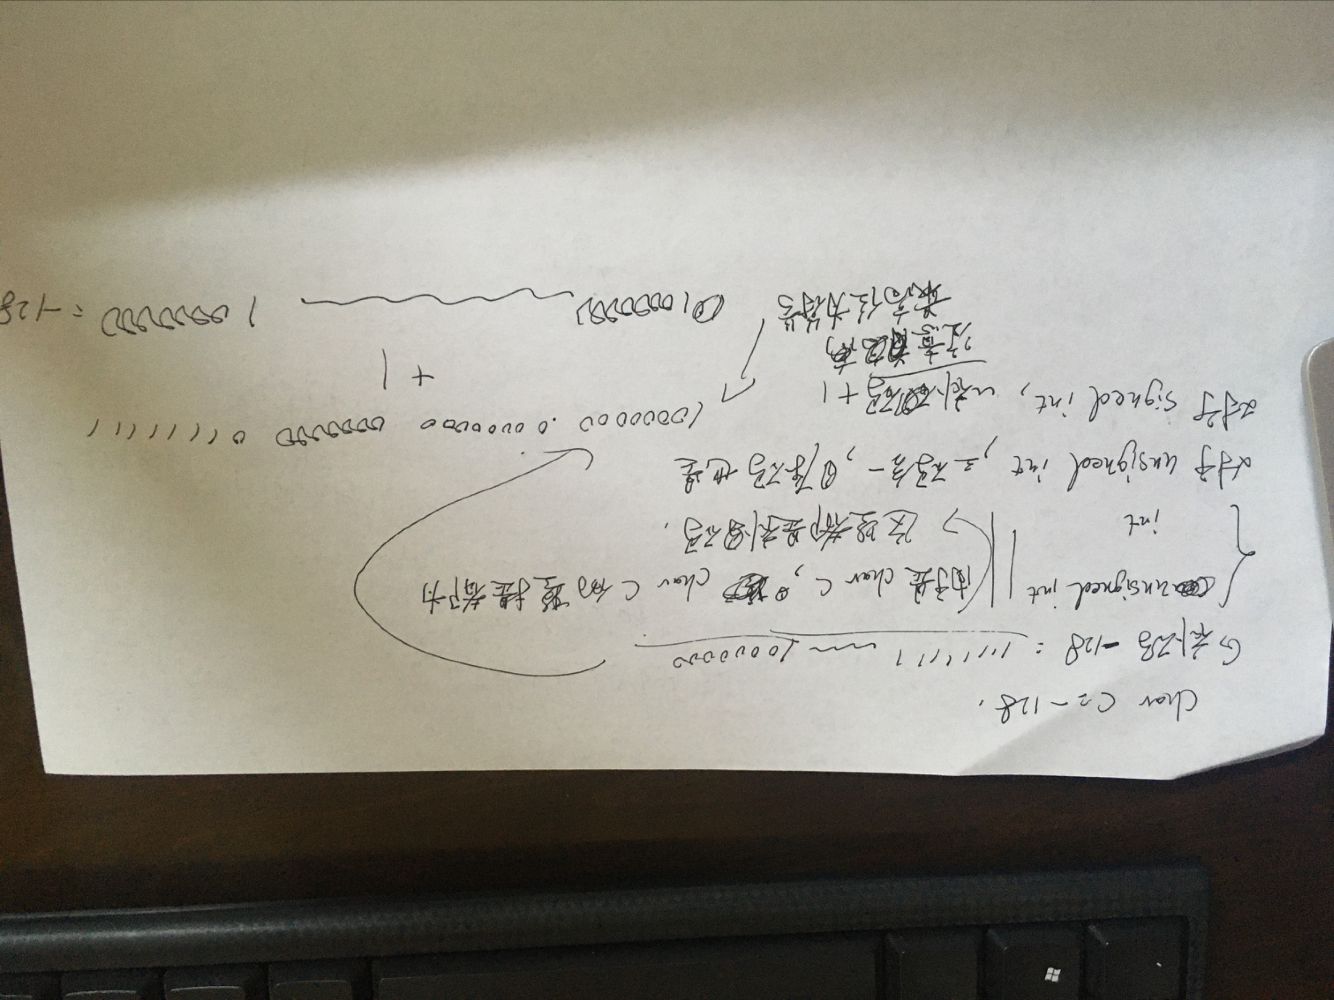 char c = -128.
补码 -128 : 11111111 10000000
unsigned int
int
由于是 char c, char c 的整提都为
这些都是补码.
对于 unsigned int, 三码合一, 原码也是
对于 signed int, ~补码 + 1
注意
最高位为符号
10000000 . 00000000 0000000 01111111
+ 1
10000000 10000000 = -128